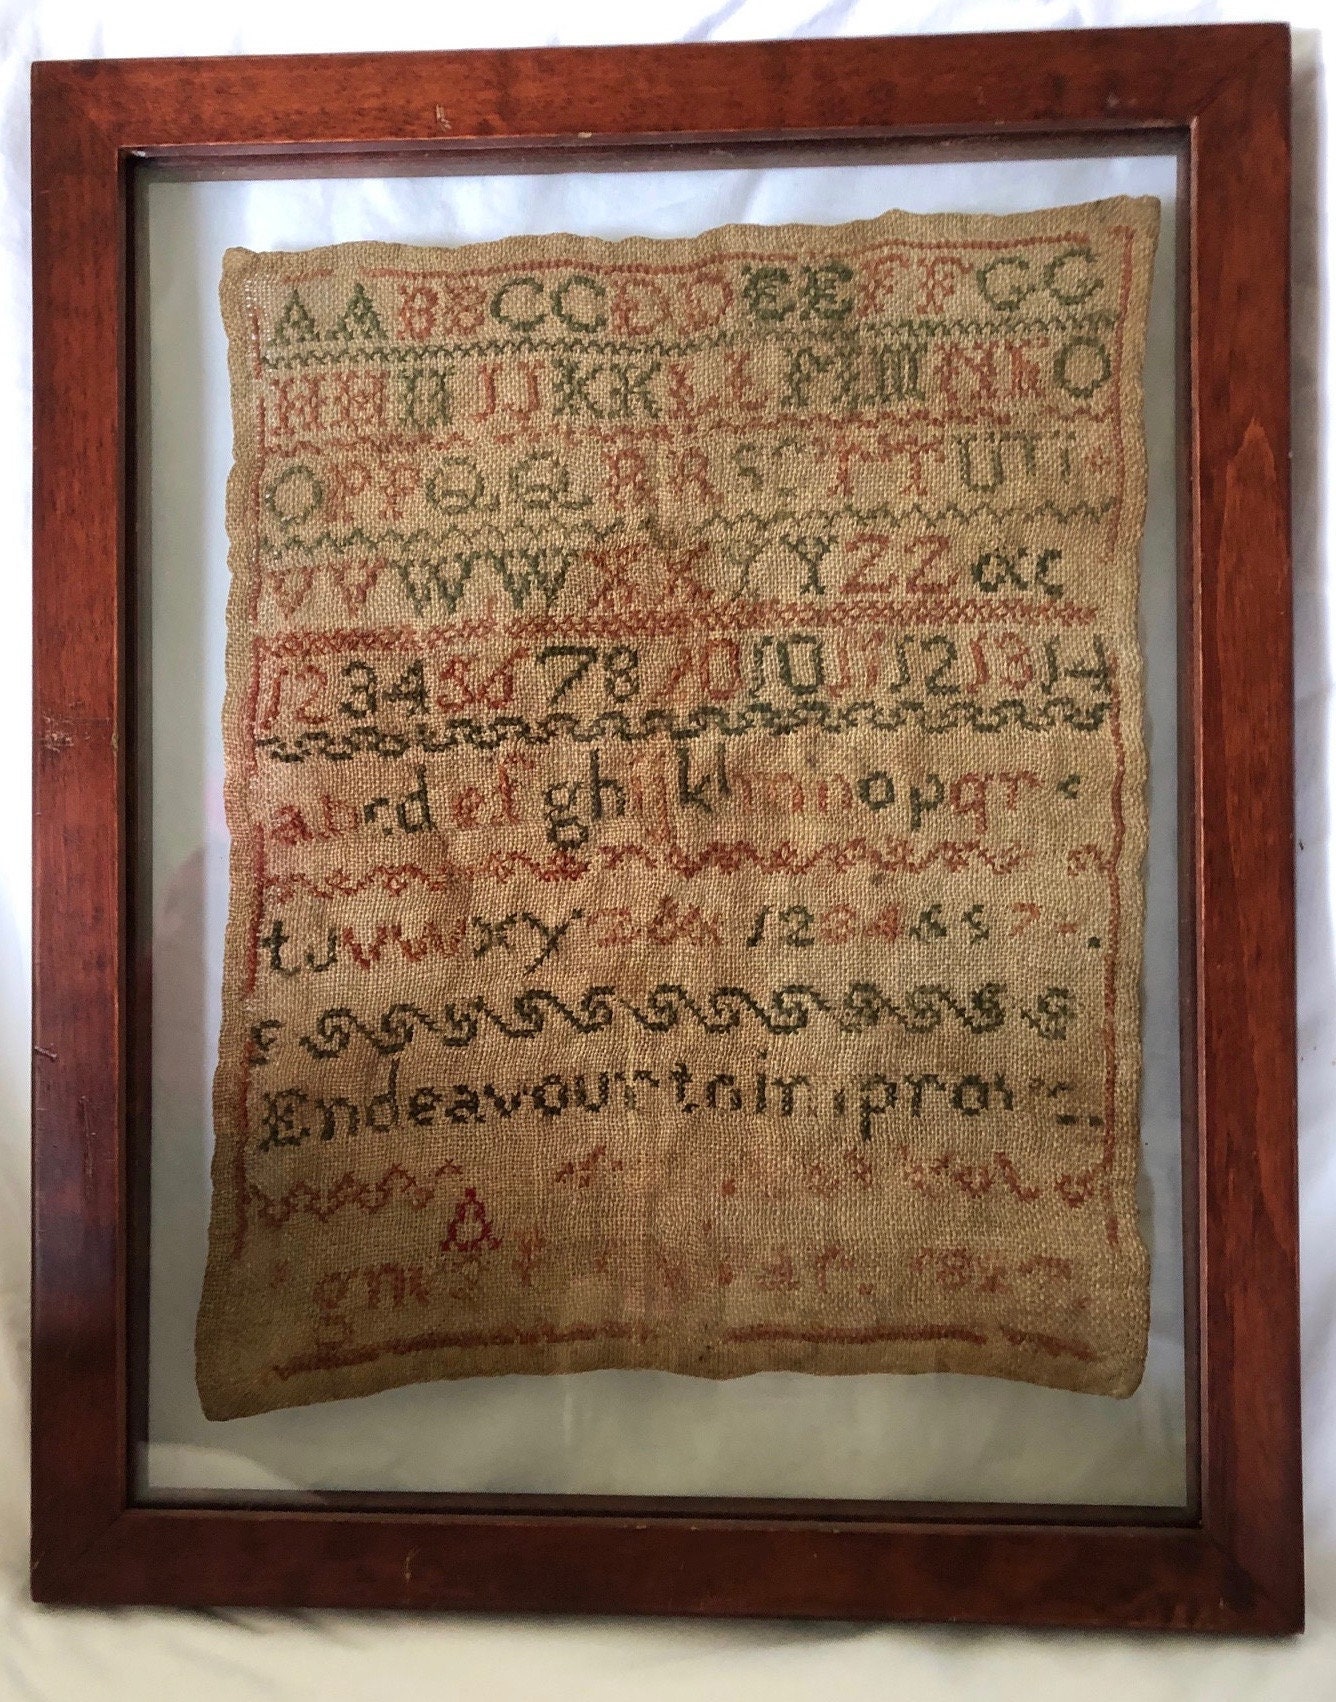 AABBCCDDEEFFGG
HHIIJJKKLLMMNNO
OPPQQRRSSTTUU
VVWWXXYYZZ &
12345678 10 11 12 13 14
abcdefghijklmnopqrs
tuvwxyz 1234657
Endeavour to improve
A